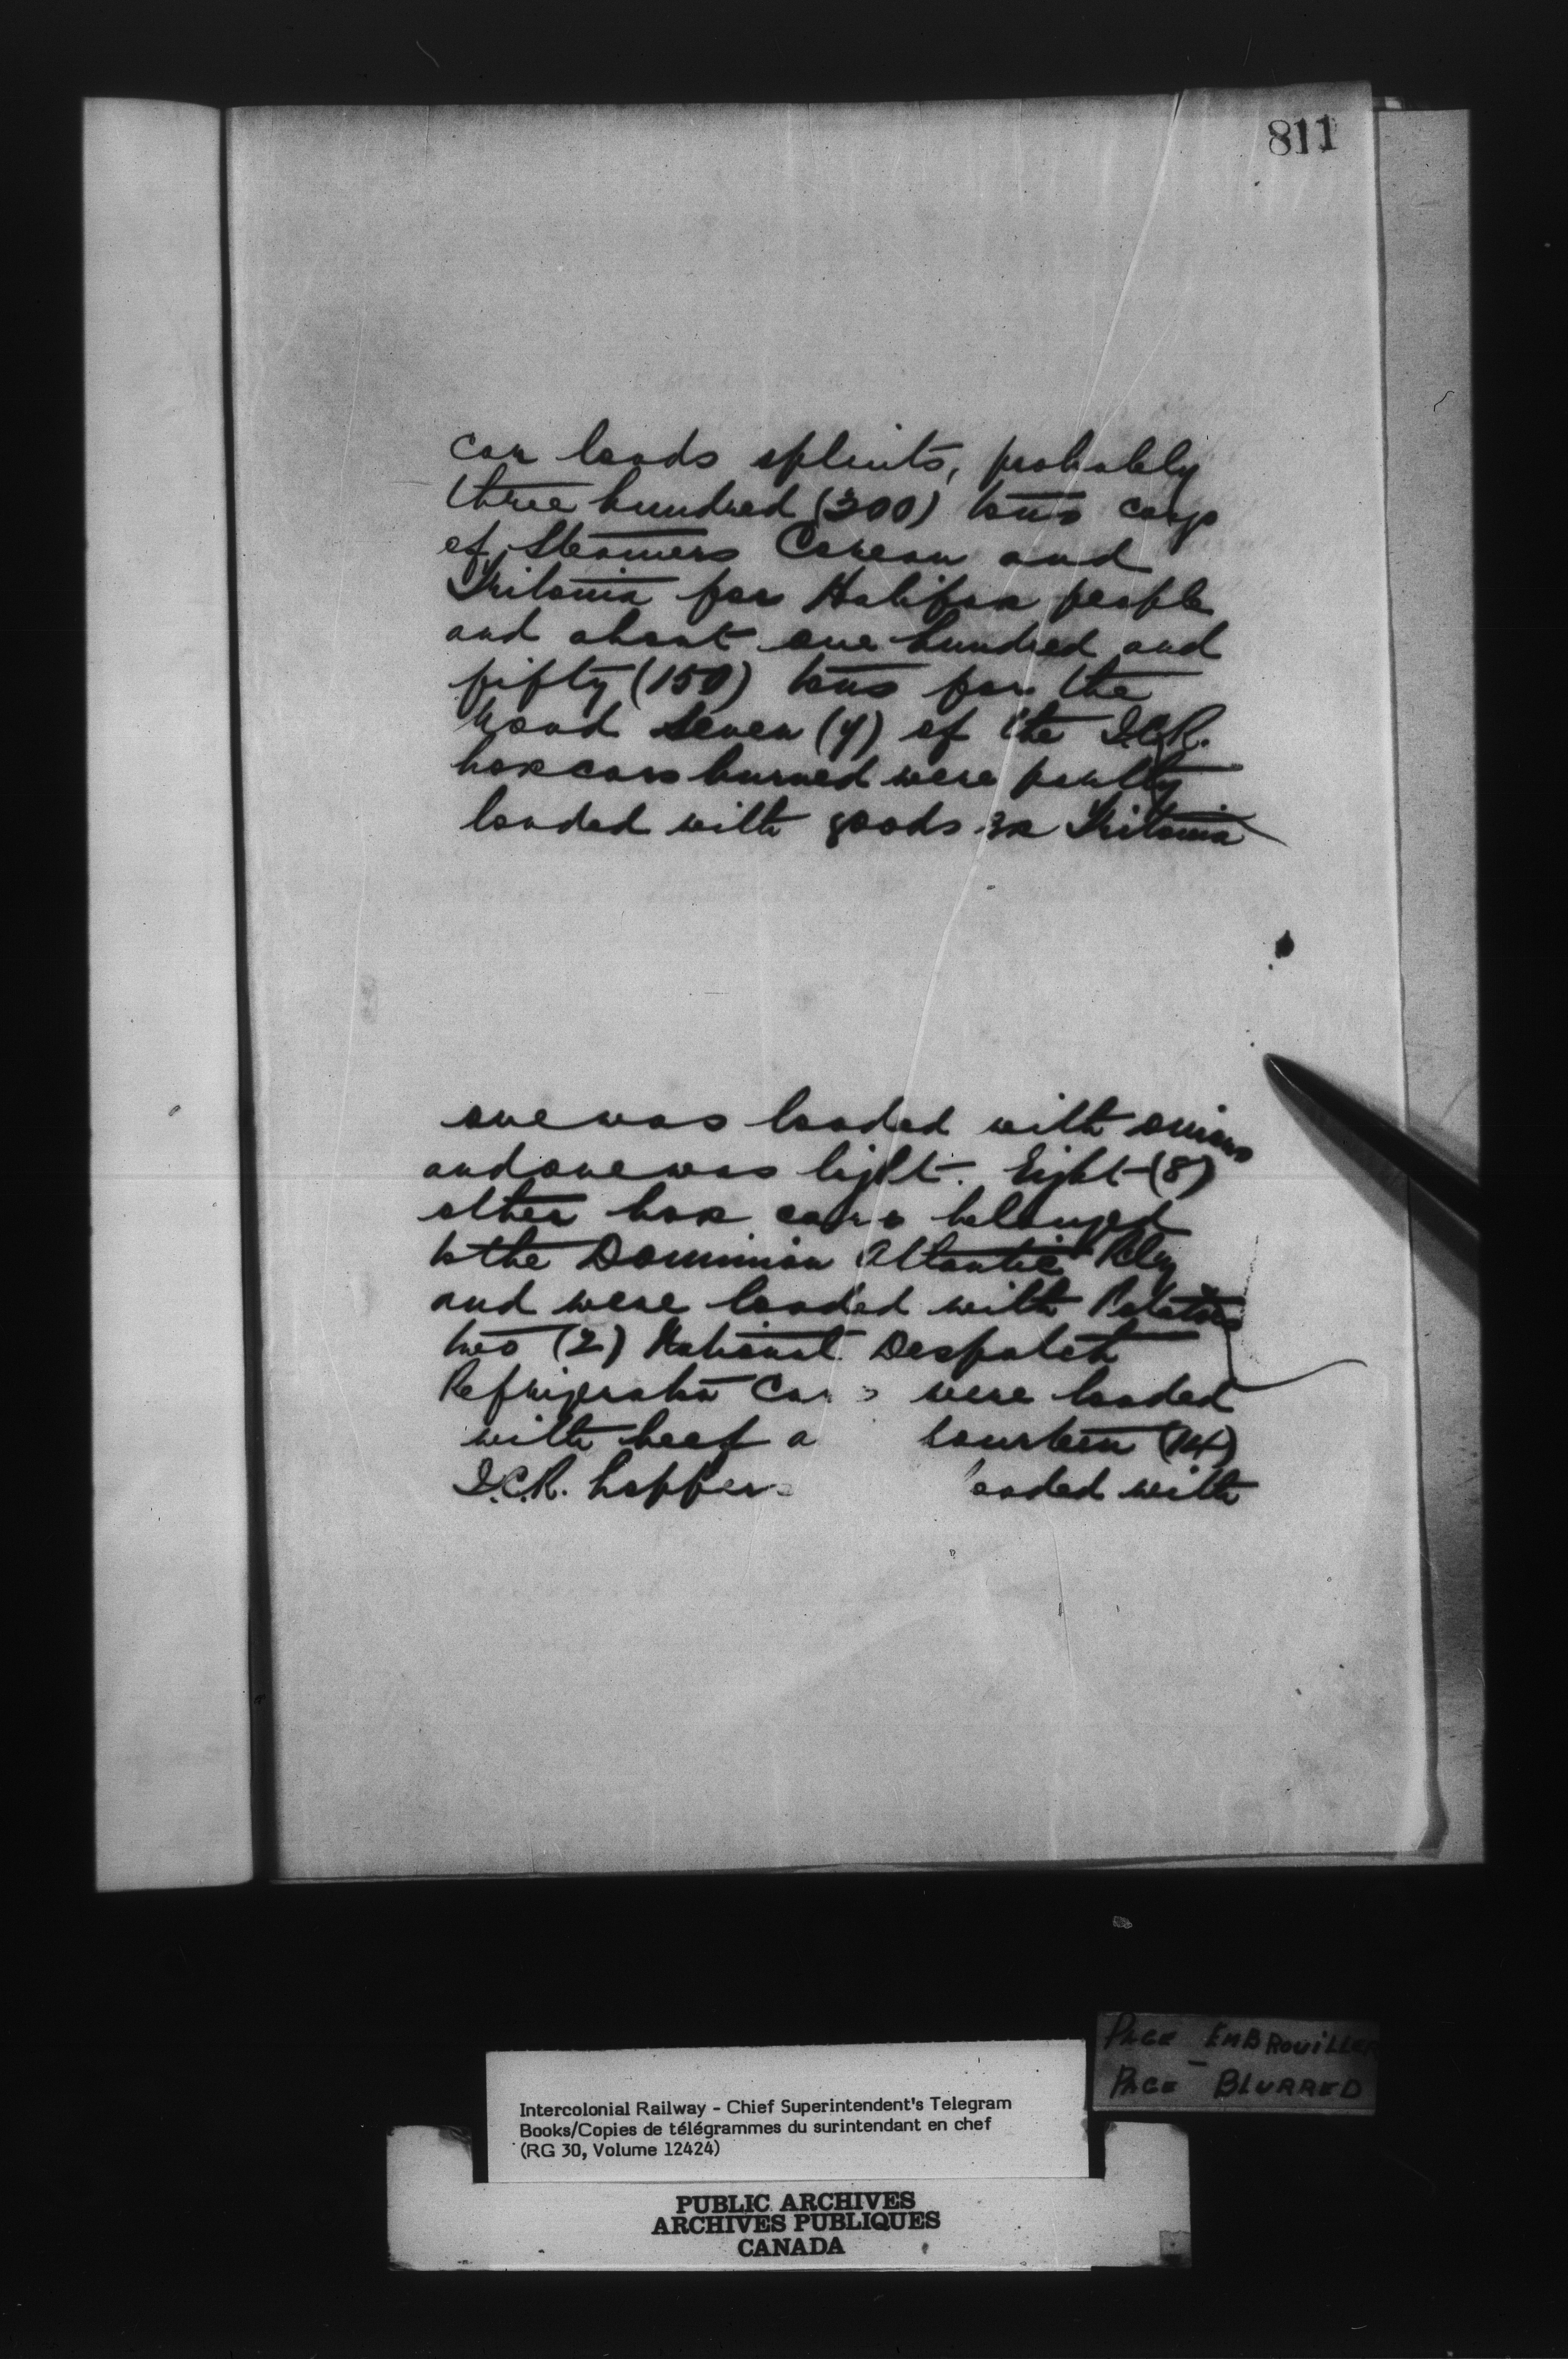 811
car loads splints, probably
three hundred (300) tons cargo
of Steamers Corean and
Tritonia for Halifax people
and about one hundred and
fifty (150) tons for the
road seven (7) of the I.C.R.
box cars burned were partly
loaded with goods ex Tritonia
one was loaded with onions
and one was light. Eight (8)
other box cars belonged
to the Dominion Atlantic Rly
and were loaded with Potatoes
two (2) National Despatch
Refrigerator Cars were loaded
with beef a fourteen (14)
I.C.R. hoppers loaded with
PAGE EMBROUILLER
PAGE - BLURRED
Intercolonial Railway - Chief Superintendent's Telegram
Books/Copies de télégrammes du surintendant en chef
(RG 30, Volume 12424)
PUBLIC ARCHIVES
ARCHIVES PUBLIQUES
CANADA